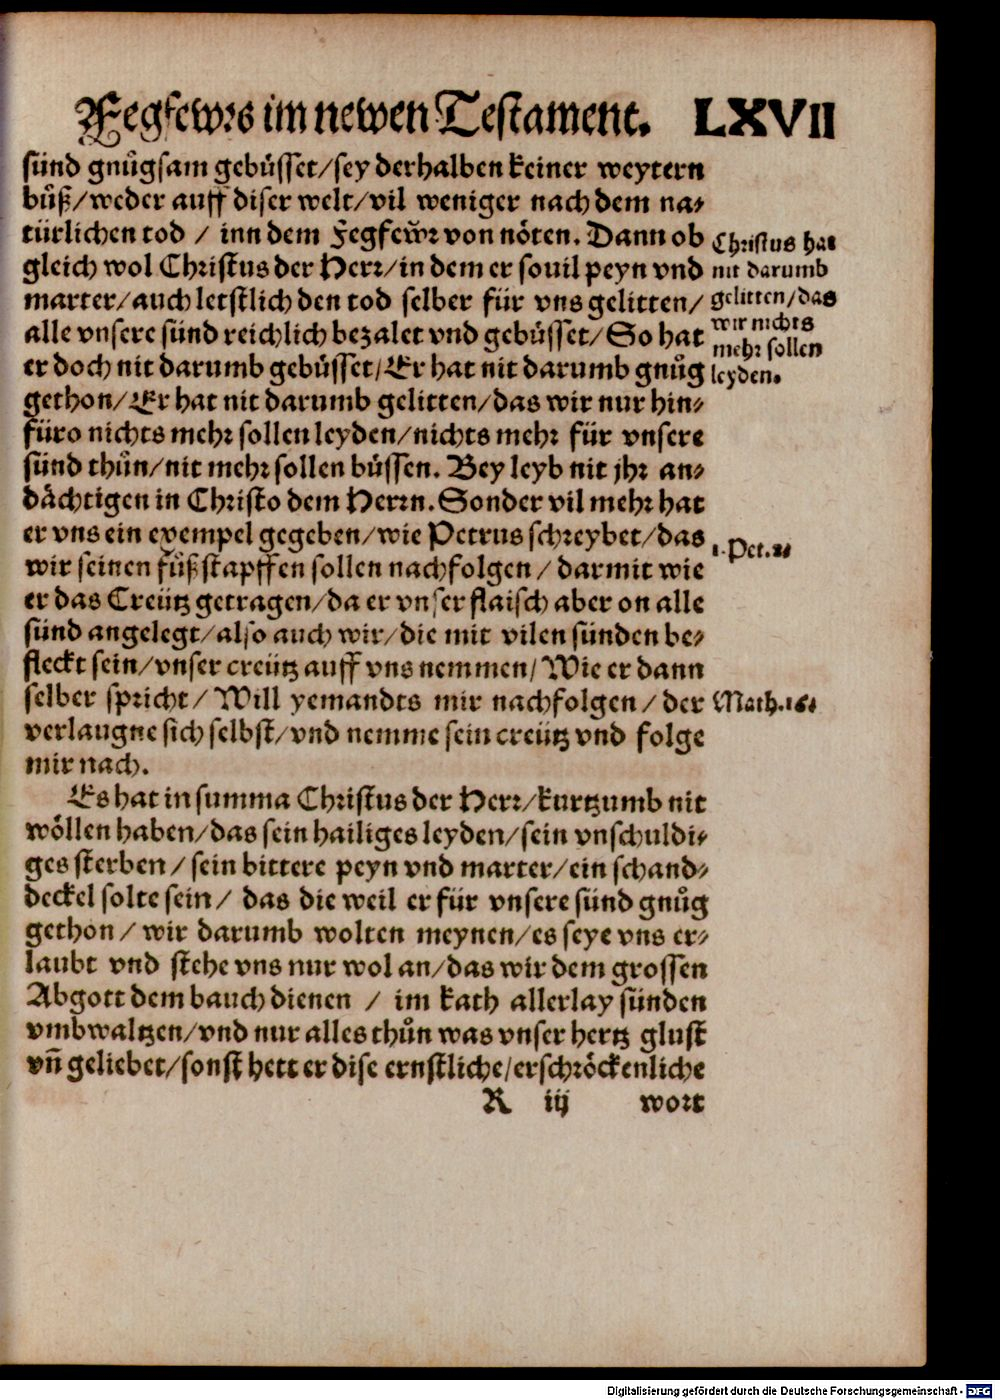 Fegfewrs im newen Testament. LXVII
sünd gnůgsam gebüsset/sey derhalben keiner weytern
bůß/weder auff diser welt/vil weniger nach dem na-
türlichen tod / inn dem Fegfewr von nöten. Dann ob
gleich wol Christus der Herr/in dem er souil peyn vnd
marter/auch letstlich den tod selber für vns gelitten/
alle vnsere sünd reichlich bezalet vnd gebüsset/So hat
er doch nit darumb gebüsset/Er hat nit darumb gnůg
gethon/Er hat nit darumb gelitten/das wir nur hin-
füro nichts mehr sollen leyden/nichts mehr für vnsere
sünd thůn/nit mehr sollen büssen. Bey leyb nit jhr an-
dächtigen in Christo dem Herrn. Sonder vil mehr hat
er vns ein exempel gegeben/wie Petrus schreybet/das
wir seinen fůßstapffen sollen nachfolgen / darmit wie
er das Creütz getragen/da er vnser flaisch aber on alle
sünd angelegt/also auch wir/die mit vilen sünden be-
fleckt sein/vnser creütz auff vns nemmen/Wie er dann
selber spricht/Will yemandts mir nachfolgen/der
verlaugne sich selbst/vnd nemme sein creütz vnd folge
mir nach.
Christus hat
nit darumb
gelitten/das
wir nichts
mehr sollen
leyden.
1. Pet. 2.
Math. 16.
Es hat in summa Christus der Herr/kurtzumb nit
wöllen haben/das sein hailiges leyden/sein vnschuldi-
ges sterben / sein bittere peyn vnd marter/ein schand-
deckel solte sein / das die weil er für vnsere sünd gnůg
gethon / wir darumb wolten meynen/es seye vns er-
laubt vnd stehe vns nur wol an/das wir dem grossen
Abgott dem bauch dienen / im kath allerlay sünden
vmbwaltzen/vnd nur alles thůn was vnser hertz glust
vñ geliebet/sonst hett er dise ernstliche/erschröckenliche
R iij wort
Digitalisierung gefördert durch die Deutsche Forschungsgemeinschaft - DFG